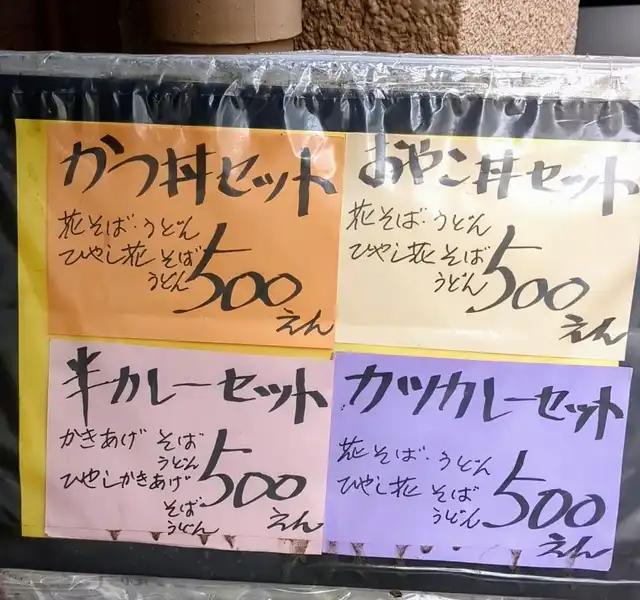 かつ丼セット
花そば・うどん
ひやし花そば
うどん
500
えん
おやこ丼セット
花そば・うどん
ひやし花そば
うどん
500
えん
半カレーセット
かきあげそば
うどん
ひやしかきあげ
そば
うどん
500
えん
カツカレーセット
花そば・うどん
ひやし花そば
うどん
500
えん